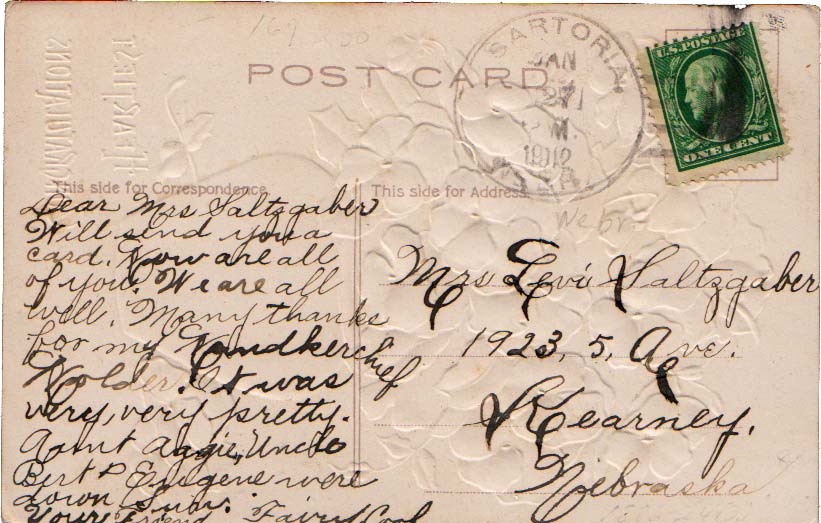 169
POST CARD
SARTORIA
JAN
1912
NEBR.
U.S. POSTAGE
ONE CENT
HEARTIEST
This side for Correspondence
This side for Address
Nebr
Dear Mrs Saltzgaber
Will send you a
card. How are all
of you. We are all
well. Many thanks
for my Handkerchief
Holder. It was
very, very pretty.
Aunt Aggie, Uncle
Bert & Eugene were
down Sun.
Your Friend Fairy
Mrs Levi Saltzgaber
1923, 5, Ave.
Kearney,
Nebraska